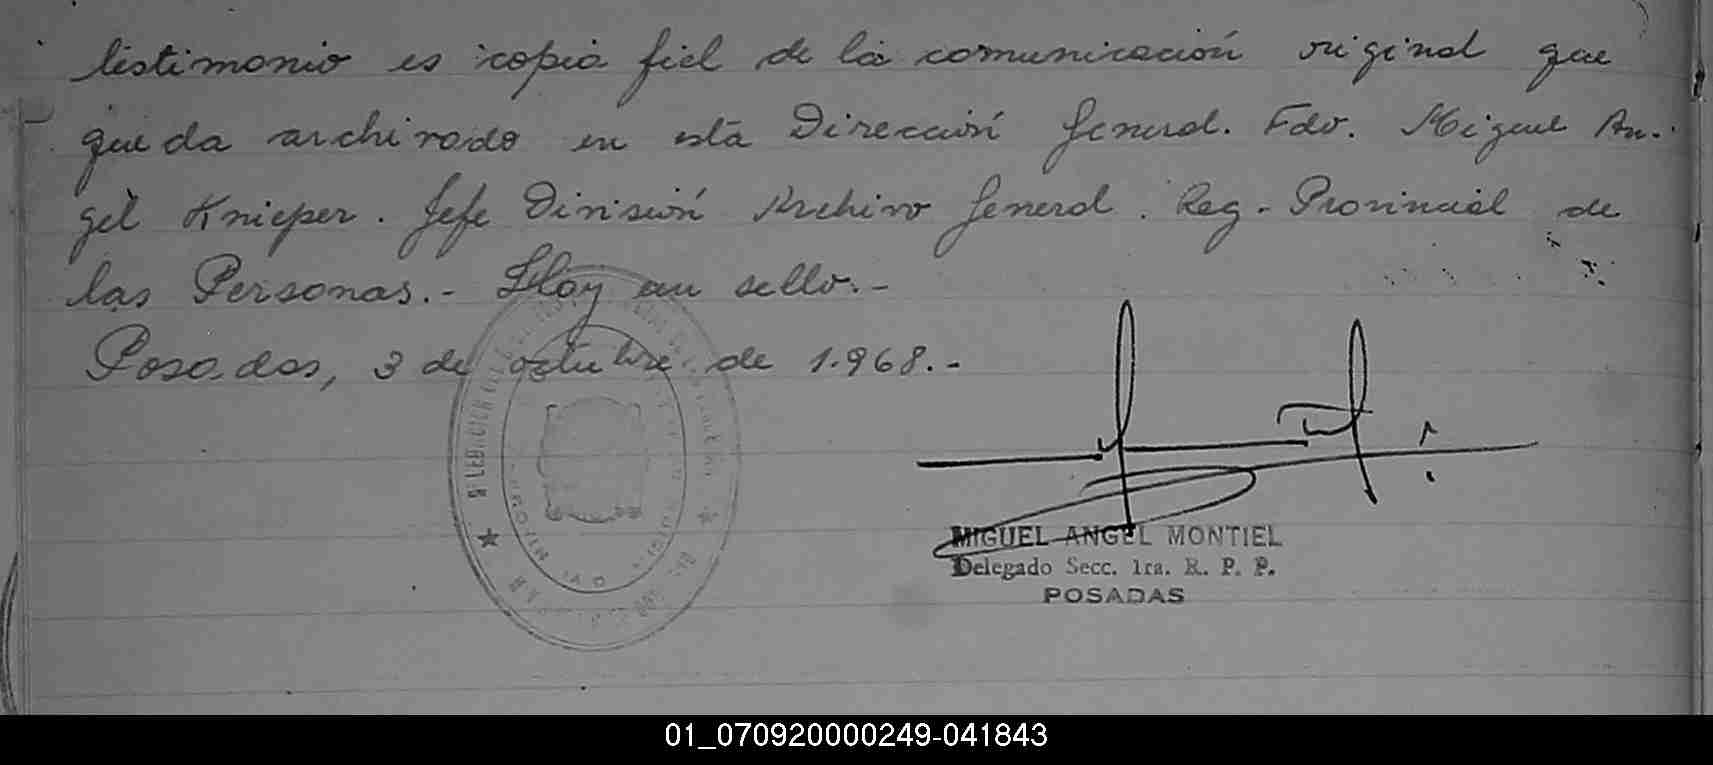 testimonio es copia fiel de la comunicación original que
queda archivado en esta Dirección General. Fdo. Miguel An-
gel Knieper. Jefe División Archivo General. Reg. Provincial de
las Personas.- Hay un sello.-
Posadas, 3 de octubre de 1.968.-
MIGUEL ANGEL MONTIEL
Delegado Secc. 1ra. R. P. P.
POSADAS
01_070920000249-041843